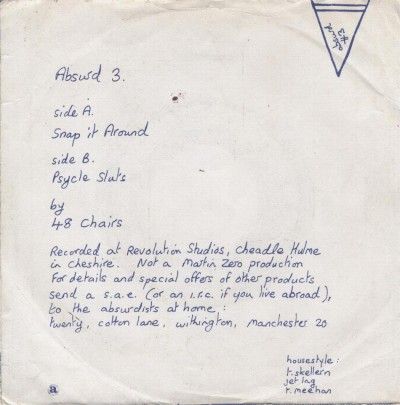 absurd
#3
Absurd 3.
side A.
Snap it Around
side B.
Psycle Sluts
by
48 Chairs
Recorded at Revolution Studios, Cheadle Hulme
in Cheshire. Not a Martin Zero production
For details and special offers of other products
send a s.a.e. (or an i.r.c. if you live abroad),
to the absurdists at home:
twenty, cotton lane, withington, manchester 20
housestyle:
t.skellern
jet lag
r.meehan
a